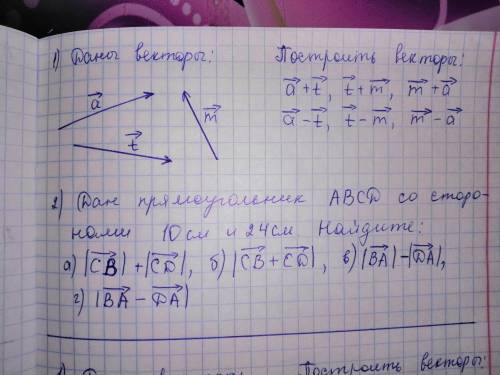 1) Даны векторы: Построить векторы:
a⃗ m⃗ t⃗
a⃗ + t⃗, t⃗ + m⃗, m⃗ + a⃗
a⃗ - t⃗, t⃗ - m⃗, m⃗ - a⃗
2) Дан прямоугольник ABCD со сторо-
нами 10 см и 24 см. Найдите:
а) |CB⃗| + |CD⃗|, б) |CB⃗ + CD⃗|, в) |BA⃗| - |DA⃗|,
г) |BA⃗ - DA⃗|
Построить векторы: